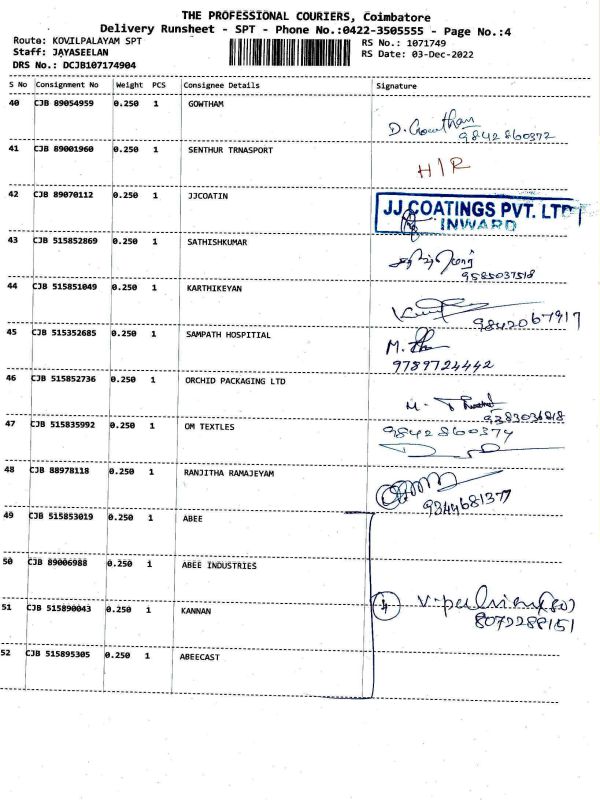 THE PROFESSIONAL COURIERS, Coimbatore
Delivery Runsheet - SPT - Phone No.:0422-3505555 - Page No.:4
Route: KOVILPALAYAM SPT
RS No.: 1071749
Staff: JAYASEELAN
RS Date: 03-Dec-2022
DRS No.: DCJB107174904
S No Consignment No Weight PCS Consignee Details Signature
40 CJB 89054959 0.250 1 GOWTHAM
D. Gowtham
9842860372
41 CJB 89001960 0.250 1 SENTHUR TRNASPORT
H/R
42 CJB 89070112 0.250 1 JJCOATIN
JJ COATINGS PVT. LTD
INWARD
43 CJB 515852869 0.250 1 SATHISHKUMAR
9585037518
44 CJB 515851049 0.250 1 KARTHIKEYAN
9842067917
45 CJB 515352685 0.250 1 SAMPATH HOSPITIAL
M.
9789724442
46 CJB 515852736 0.250 1 ORCHID PACKAGING LTD
M.
9383036818
47 CJB 515835992 0.250 1 OM TEXTLES
9842860374
48 CJB 88978118 0.250 1 RANJITHA RAMAJEYAM
9344681377
49 CJB 515853019 0.250 1 ABEE
50 CJB 89006988 0.250 1 ABEE INDUSTRIES
51 CJB 515890043 0.250 1 KANNAN
4
8072288151
52 CJB 515895305 0.250 1 ABEECAST